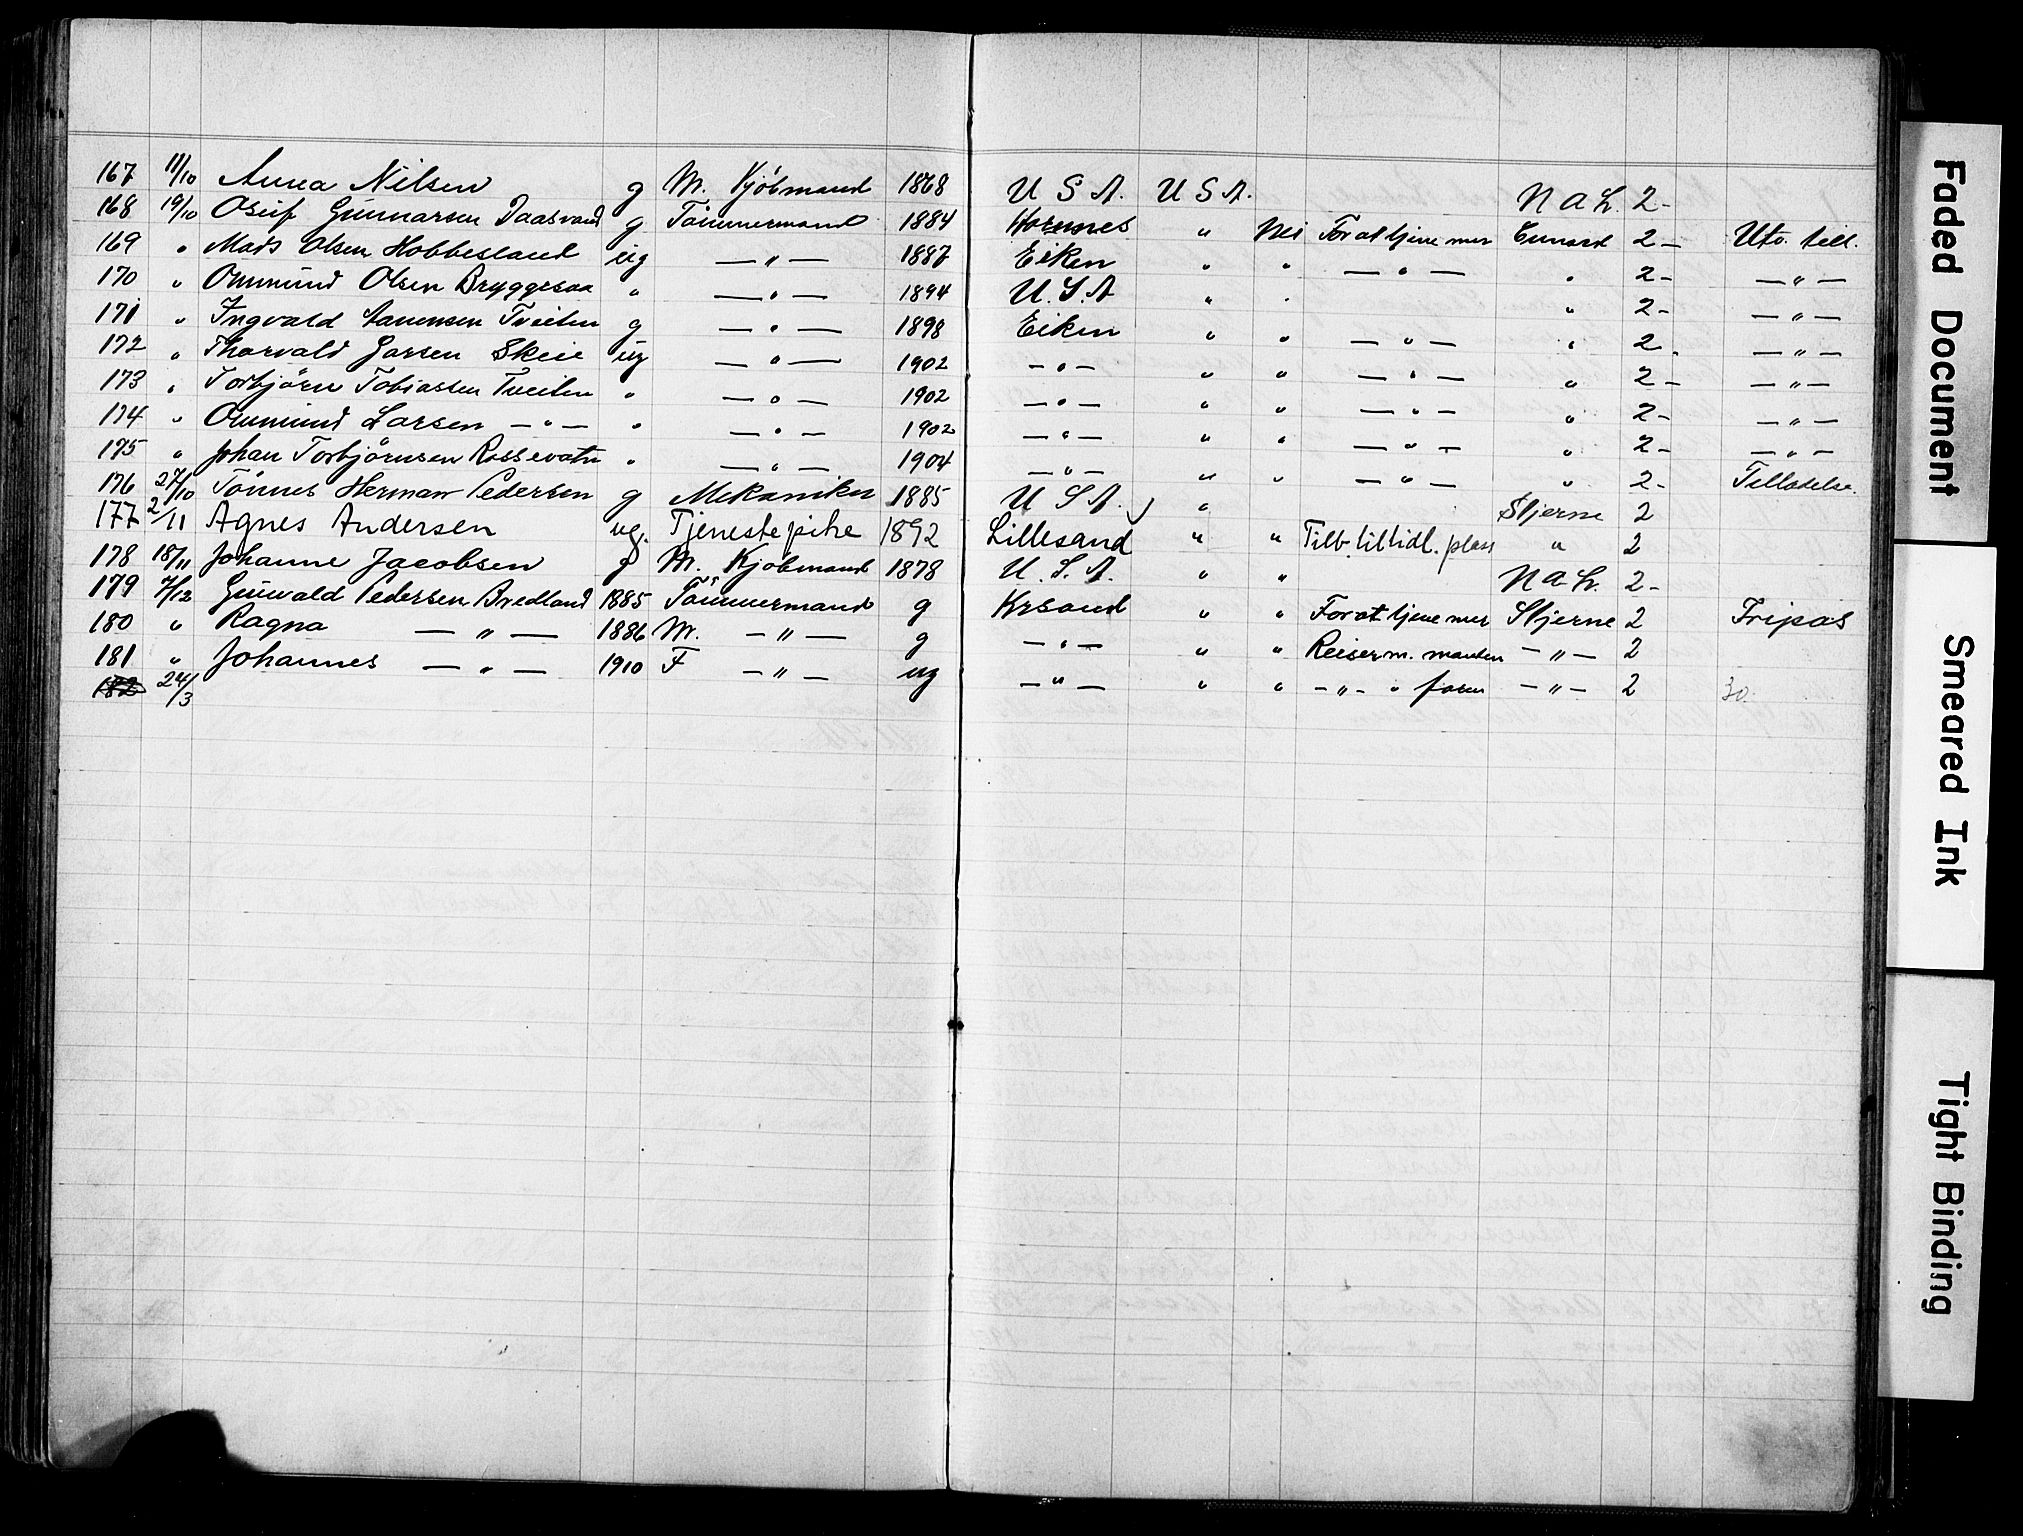 167 11/10 Anna Nilsen g M. Kjöbmand 1868 U S A. U S A. N A L. 2-
168 19/10 Osuf Gunnarsen Daasvand g Tömmermand 1884 Hornnes " Nei For at tjene mer Cunard 2- Utv. till.
169 " Mads Olsen Hobbesland ug —"— 1887 Eiken " " —"— " 2- —"—
170 " Ommund Olsen Bryggesaa " —"— 1894 U.S.A " " " 2- —"—
171 " Ingvald Aanensen Tveiten g —"— 1898 Eiken " " —"— " 2- —"—
172 " Thorvald Larsen Skeie ug —"— 1902 —"— " " —"— " 2- —"—
173 " Torbjörn Tobiassen Tveiten " —"— 1902 —"— " " —"— " 2- —"—
174 " Ommund Larsen —"— " —"— 1902 —"— " " —"— " 2- —"—
175 " Johan Torbjörnsen Rossevatn " —"— 1904 —"— " " —"— " 2- Tillatelse.
176 27/10 Tönnes Herman Pedersen g Mekaniker 1885 U S A. " Stjerne 2
177 2/11 Agnes Andersen ug. Tjenestepike 1892 Lillesand " " Tilb. til tidl. plass " 2
178 18/11 Johanne Jacobsen g M. Kjöbmand 1878 U.S.A. " " N A L. 2-
179 7/12 Gunvald Pedersen Bredland 1885 Tömmermand g Krsand " " For at tjene mer Stjerne 2 Fripas
180 " Ragna —"— 1886 M. —"— g —"— " " Reiser m. manden —"— 2
181 " Johannes —"— 1910 F —"— ug —"— " " —"— " faren —"— 2 30.
182 24/3
Faded Document
Smeared Ink
Tight Binding